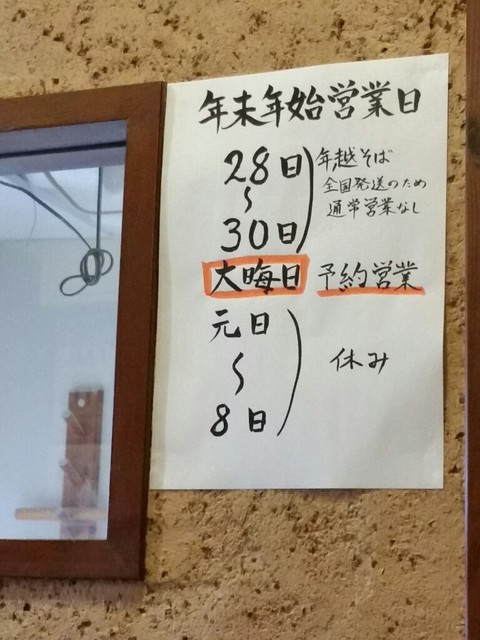 年末年始営業日
28日
〜
30日
年越そば
全国発送のため
通常営業なし
大晦日 予約営業
元日
〜
8日
休み